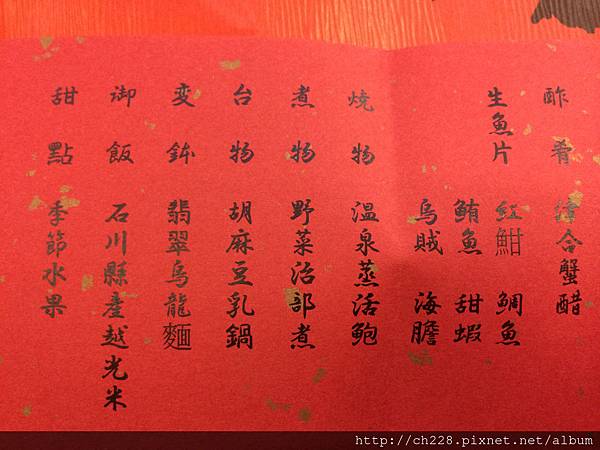 酢肴 繪合蟹醋
生魚片 紅魽 鯛魚
鮪魚 甜蝦
烏賊 海膽
燒物 溫泉蒸活鮑
煮物 野菜治部煮
台物 胡麻豆乳鍋
変鉢 翡翠烏龍麵
御飯 石川縣産越光米
甜點 季節水果
http://ch228.pixnet.net/album